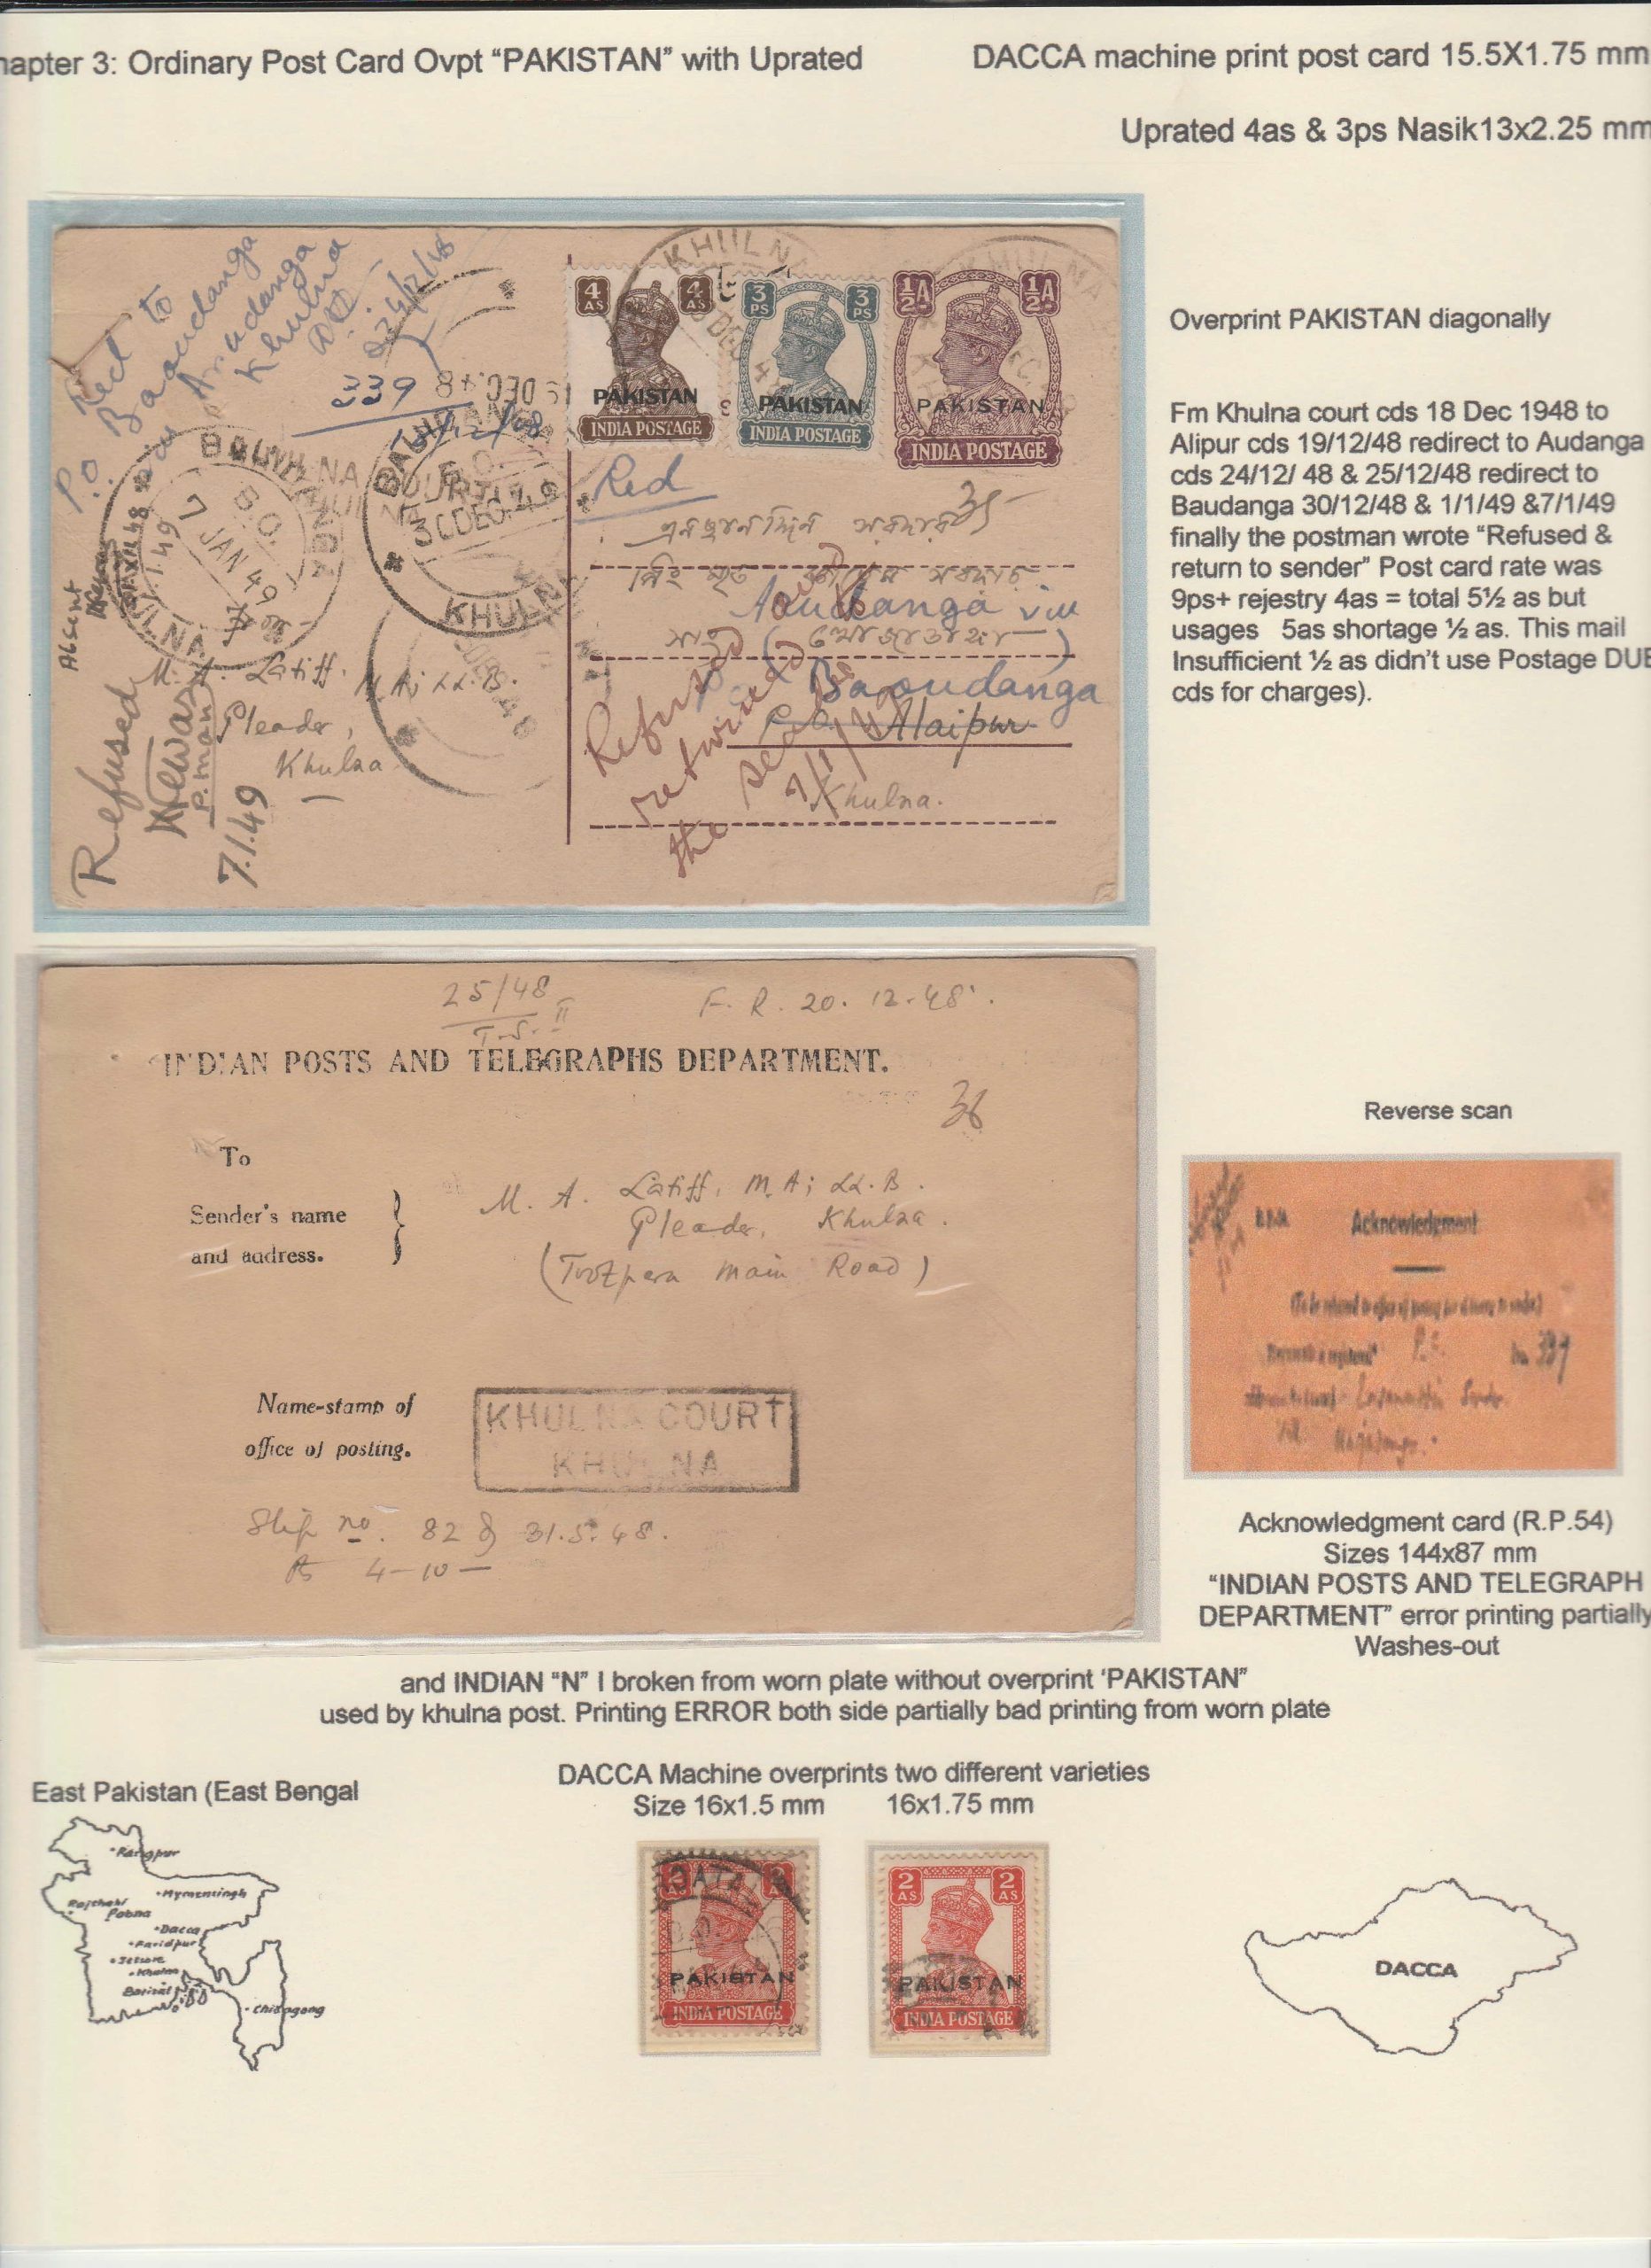 hapter 3: Ordinary Post Card Ovpt “PAKISTAN” with Uprated
DACCA machine print post card 15.5X1.75 mm
Uprated 4as & 3ps Nasik13x2.25 mm
Red to
Baoudanga
P.O.
Khulna
24/12/48
339
4 AS
4 AS
PAKISTAN
INDIA POSTAGE
KHULNA
3 PS
3 PS
PAKISTAN
INDIA POSTAGE
½A
½A
PAKISTAN
INDIA POSTAGE
KHULNA
B.O.
7 JAN 49
KHULNA
Absent
Red
35
Aoudanga via
Baoudanga
P.O. Alaipur
Khulna.
Refused
returned to
the sender
7/1/49
M. A. Latiff. M.A; LL.B.
Pleader,
Khulna
Refused
P. man
7.1.49
Overprint PAKISTAN diagonally
Fm Khulna court cds 18 Dec 1948 to
Alipur cds 19/12/48 redirect to Audanga
cds 24/12/ 48 & 25/12/48 redirect to
Baudanga 30/12/48 & 1/1/49 &7/1/49
finally the postman wrote “Refused &
return to sender” Post card rate was
9ps+ rejestry 4as = total 5½ as but
usages 5as shortage ½ as. This mail
Insufficient ½ as didn’t use Postage DUE
cds for charges).
25/48
T.S. II
F. R. 20. 12. 48.
INDIAN POSTS AND TELEGRAPHS DEPARTMENT.
36
To
Sender's name
and address.
M. A. Latiff. M.A; LL.B.
Pleader, Khulna.
(Tootpara Main Road)
Name-stamp of
office of posting.
KHULNA COURT
KHULNA
Slip no. 82 of 31.5.48.
4-10-
Reverse scan
Acknowledgment
339
Acknowledgment card (R.P.54)
Sizes 144x87 mm
“INDIAN POSTS AND TELEGRAPH
DEPARTMENT” error printing partially
Washes-out
and INDIAN “N” I broken from worn plate without overprint ‘PAKISTAN”
used by khulna post. Printing ERROR both side partially bad printing from worn plate
East Pakistan (East Bengal
DACCA Machine overprints two different varieties
Size 16x1.5 mm 16x1.75 mm
Rangpur
Mymensingh
Rajshahi
Pabna
Dacca
Faridpur
Jessore
Khulna
Barisal
Chittagong
PAKISTAN
INDIA POSTAGE
2 AS
2 AS
PAKISTAN
INDIA POSTAGE
DACCA